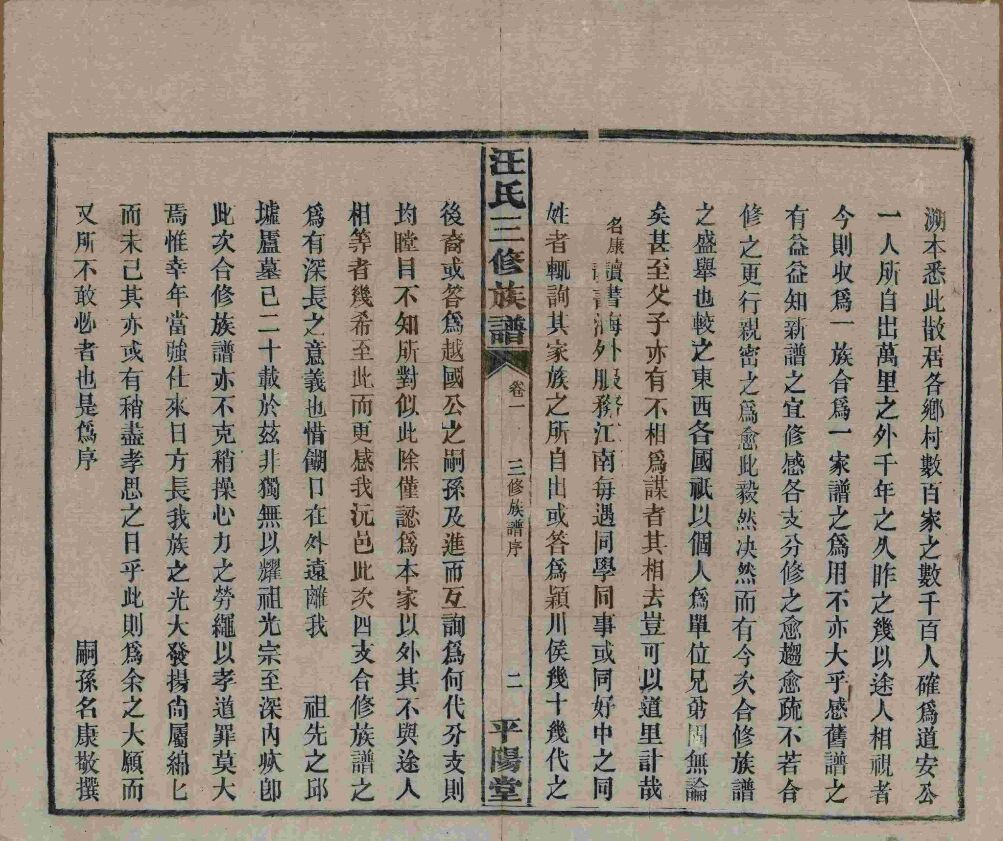 溯本悉此散居各鄉村數百家之數千百人確爲道安公
一人所自出萬里之外千年之久昨之幾以途人相視者
今則收爲一族合爲一家譜之爲用不亦大乎感舊譜之
有益益知新譜之宜修感各支分修之愈趨愈疏不若合
修之更行親密之爲愈此毅然决然而有今次合修族譜
之盛舉也較之東西各國祇以個人爲單位兄弟間無論
矣甚至父子亦有不相爲謀者其相去豈可以道里計哉
名康讀書海外服務江南每遇同學同事或同好中之同
姓者輒詢其家族之所自出或答爲潁川侯幾十幾代之
汪氏三修族譜
卷一
三修族譜序
二
平陽堂
後裔或答爲越國公之嗣孫及進而互詢爲何代分支則
均瞠目不知所對似此除僅認爲本家以外其不與途人
相等者幾希至此而更感我沅邑此次四支合修族譜之
爲有深長之意義也惜餬口在外遠離我 祖先之邱
墟廬墓已二十載於茲非獨無以耀祖光宗至深內疚卽
此次合修族譜亦不克稍操心力之勞繩以孝道罪莫大
焉惟幸年當強仕來日方長我族之光大發揚尚屬綿匕
而未已其亦或有稍盡孝思之日乎此則爲余之大願而
又所不敢必者也是爲序
嗣孫名康敬撰